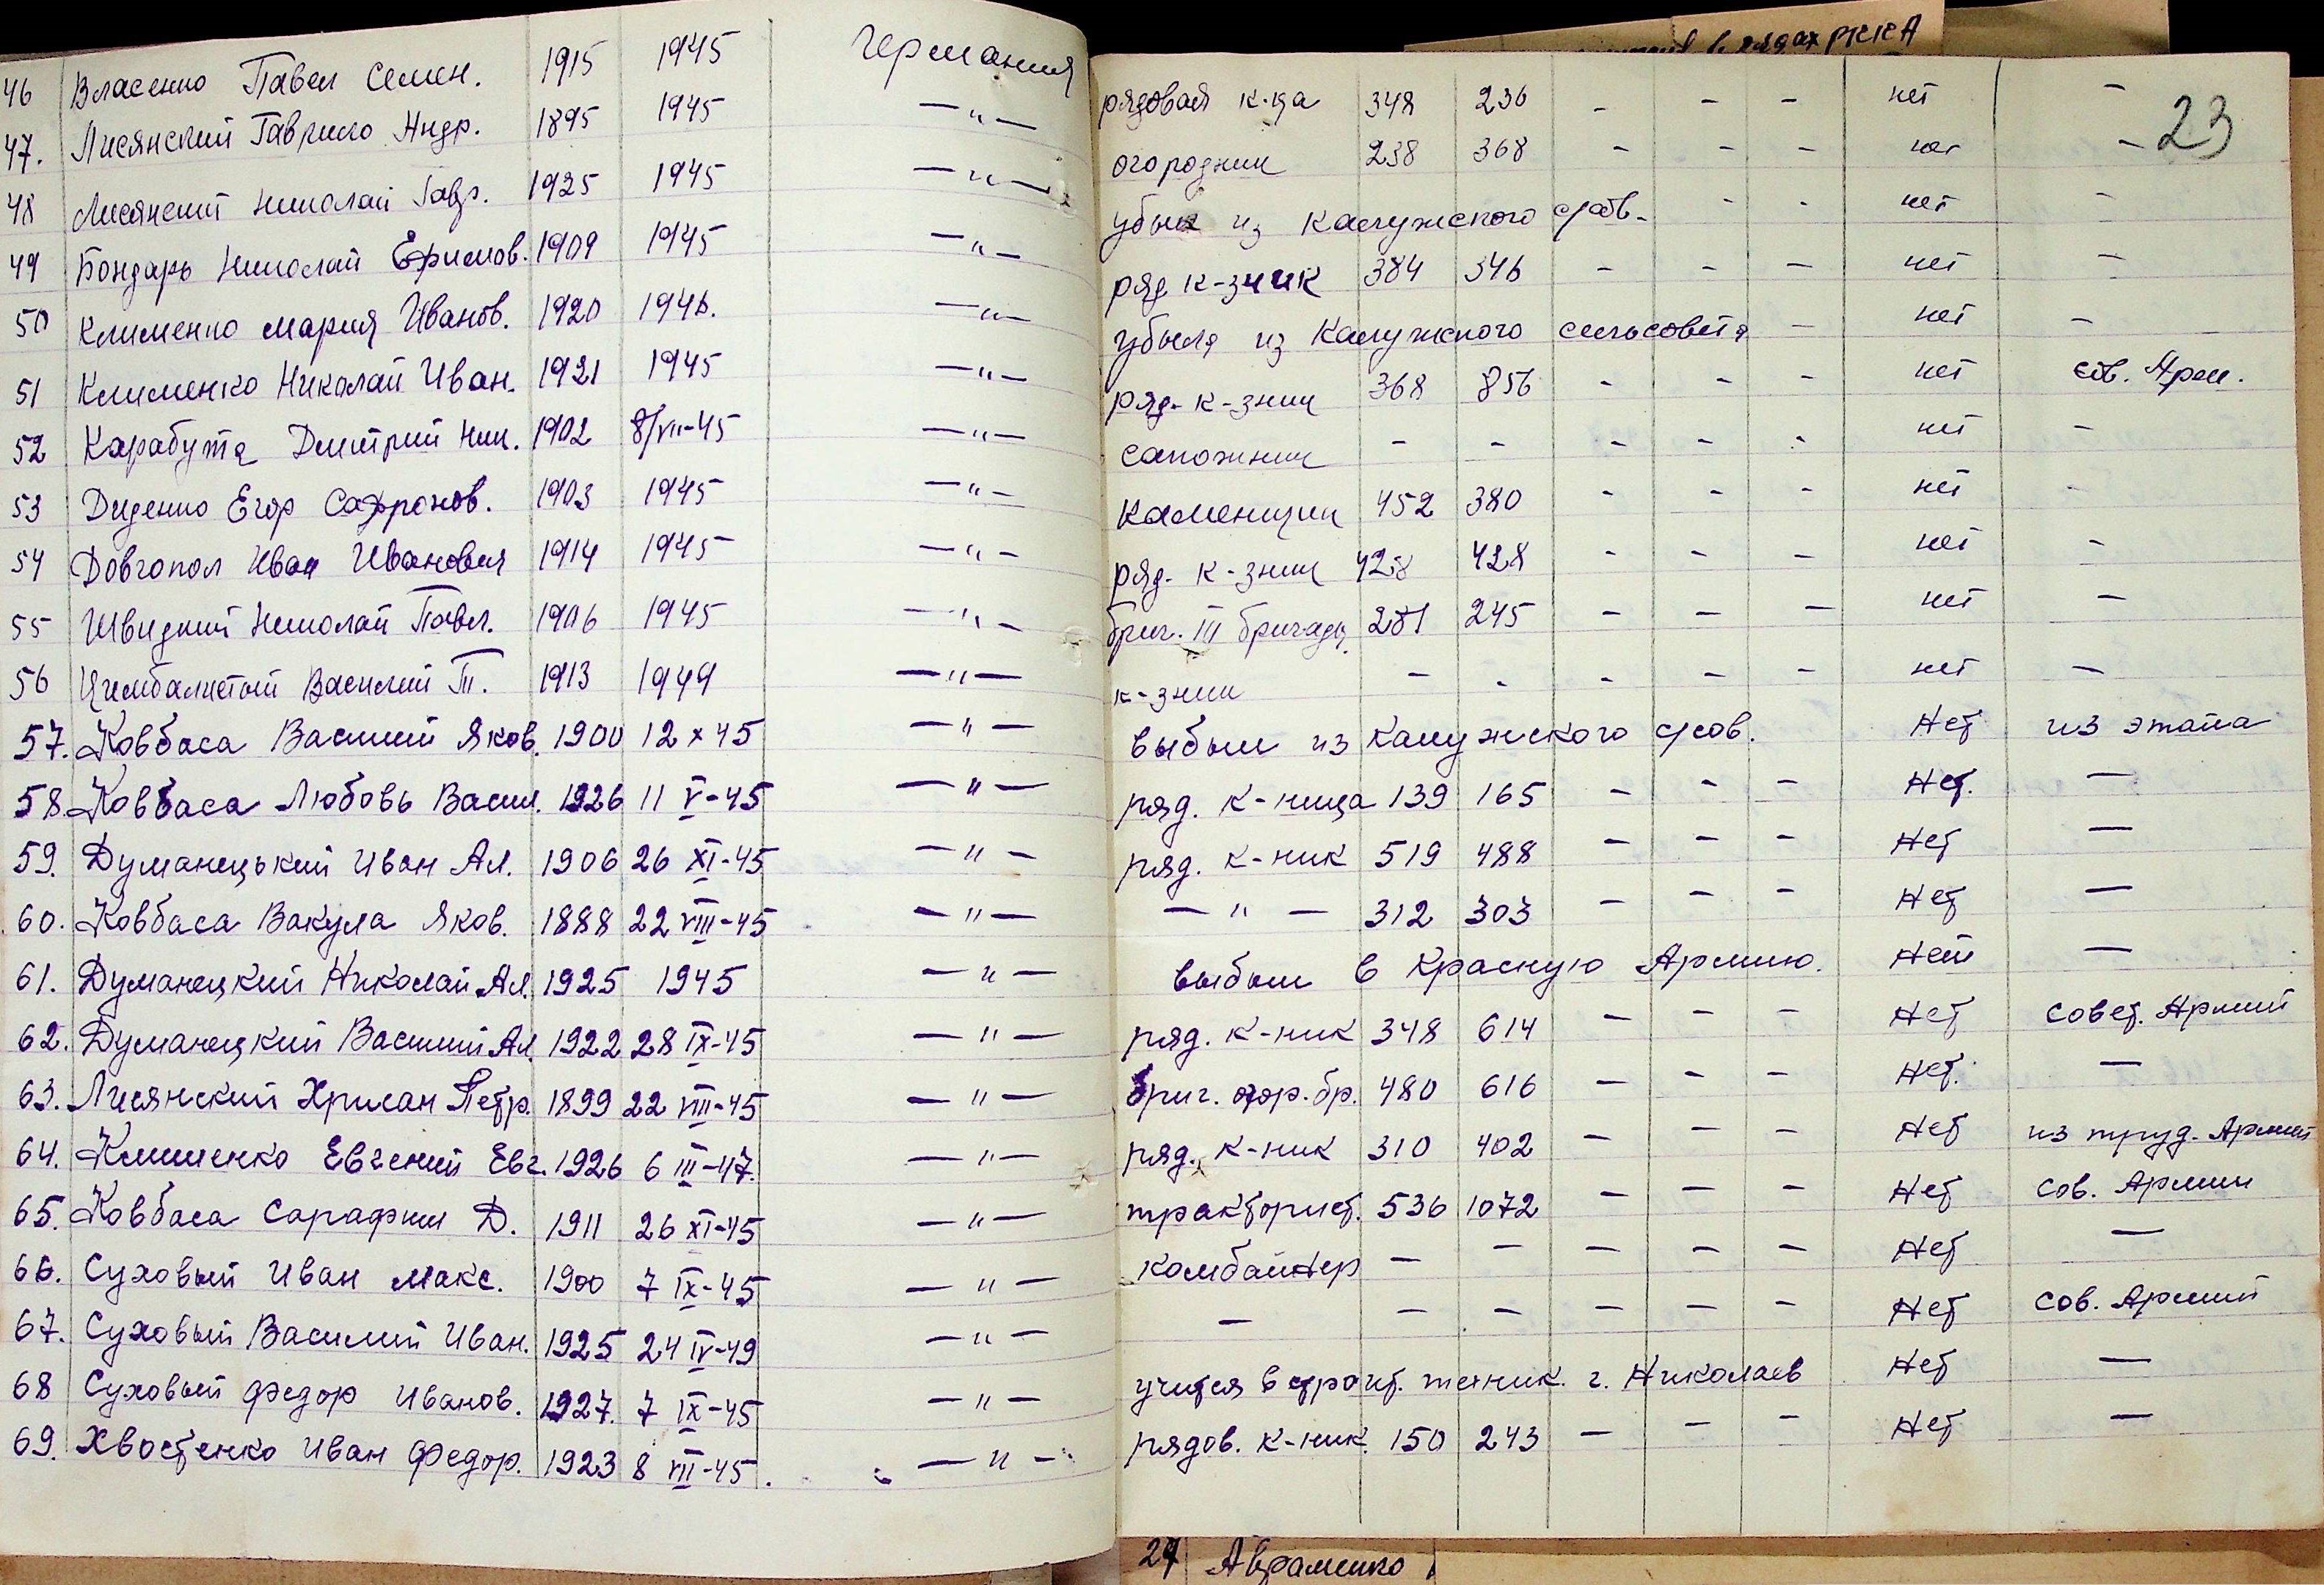 в рядах РККА
23
46 Власенко Павел Семен. 1915 1945 Германия рядовая к-ца 348 236 - - - нет -
47. Лисянский Гаврило Андр. 1895 1945 —"— огородник 238 368 - - - нет -
48 Лисянский Николай Гавр. 1925 1945 —"— убыл из Калужского с/сов. - - нет -
49 Бондарь Николай Ефимов. 1909 1945 —"— ряд к-зник 384 346 - - - нет -
50 Клименко Мария Иванов. 1920 1946. —"— убыла из Калужского сельсовета - нет -
51 Клименко Николай Иван. 1921 1945 —"— ряд. к-зник 368 856 - - - нет Сов. Арм.
52 Карабута Дмитрий Ник. 1902 8/VII-45 —"— сапожник - - - - - нет -
53 Диденко Егор Сафронов. 1903 1945 —"— каменщик 452 380 - - - нет -
54 Довгопол Иван Иванович 1914 1945 —"— ряд. к-зник 428 428 - - - нет -
55 Швидкий Николай Павл. 1906 1945 —"— бриг. III бригады 281 245 - - - нет -
56 Цимбалистый Василий П. 1913 1949 —"— к-зник - - - - - нет -
57. Ковбаса Василий Яков. 1900 12 X 45 —"— выбыл из Калужского с/сов. Нет из этапа
58. Ковбаса Любовь Васил. 1926 11 V-45 —"— ряд. к-ница 139 165 - - - Нет. —
59. Думанецький Иван Ал. 1906 26 XI-45 —"— ряд. к-ник 519 488 - - - Нет —
60. Ковбаса Вакула Яков. 1888 22 VIII-45 —"— —"— 312 303 - - - Нет —
61. Думанецкий Николай Ал. 1925 1945 —"— выбыл в Красную Армию. Нет —
62. Думанецкий Василий Ал. 1922 28 IX-45 —"— ряд. к-ник 348 614 - - - Нет Совет. Армий
63. Лисянский Хрисан Петр. 1899 22 VIII-45 —"— бриг. огор. бр. 480 616 - - - Нет. —
64. Клименко Евгений Евг. 1926 6 III-47. —"— ряд. к-ник 310 402 - - - Нет из труд. Армий
65. Ковбаса Сарафим Д. 1911 26 XI-45 —"— тракторист. 536 1072 - - - Нет Сов. Армии
66. Суховый Иван Макс. 1900 7 IX-45 —"— комбайнер - - - - - Нет —
67. Суховый Василий Иван. 1925 24 IV-49 —"— — - - - - - Нет Сов. Армий
68 Суховый Федор Иванов. 1927. 7 IX-45 —"— учится в строит. техник. г. Николаев Нет —
69. Хвостенко Иван Федор. 1923 8 VII-45. —"— рядов. к-ник. 150 243 - - - Нет —
Авраменко